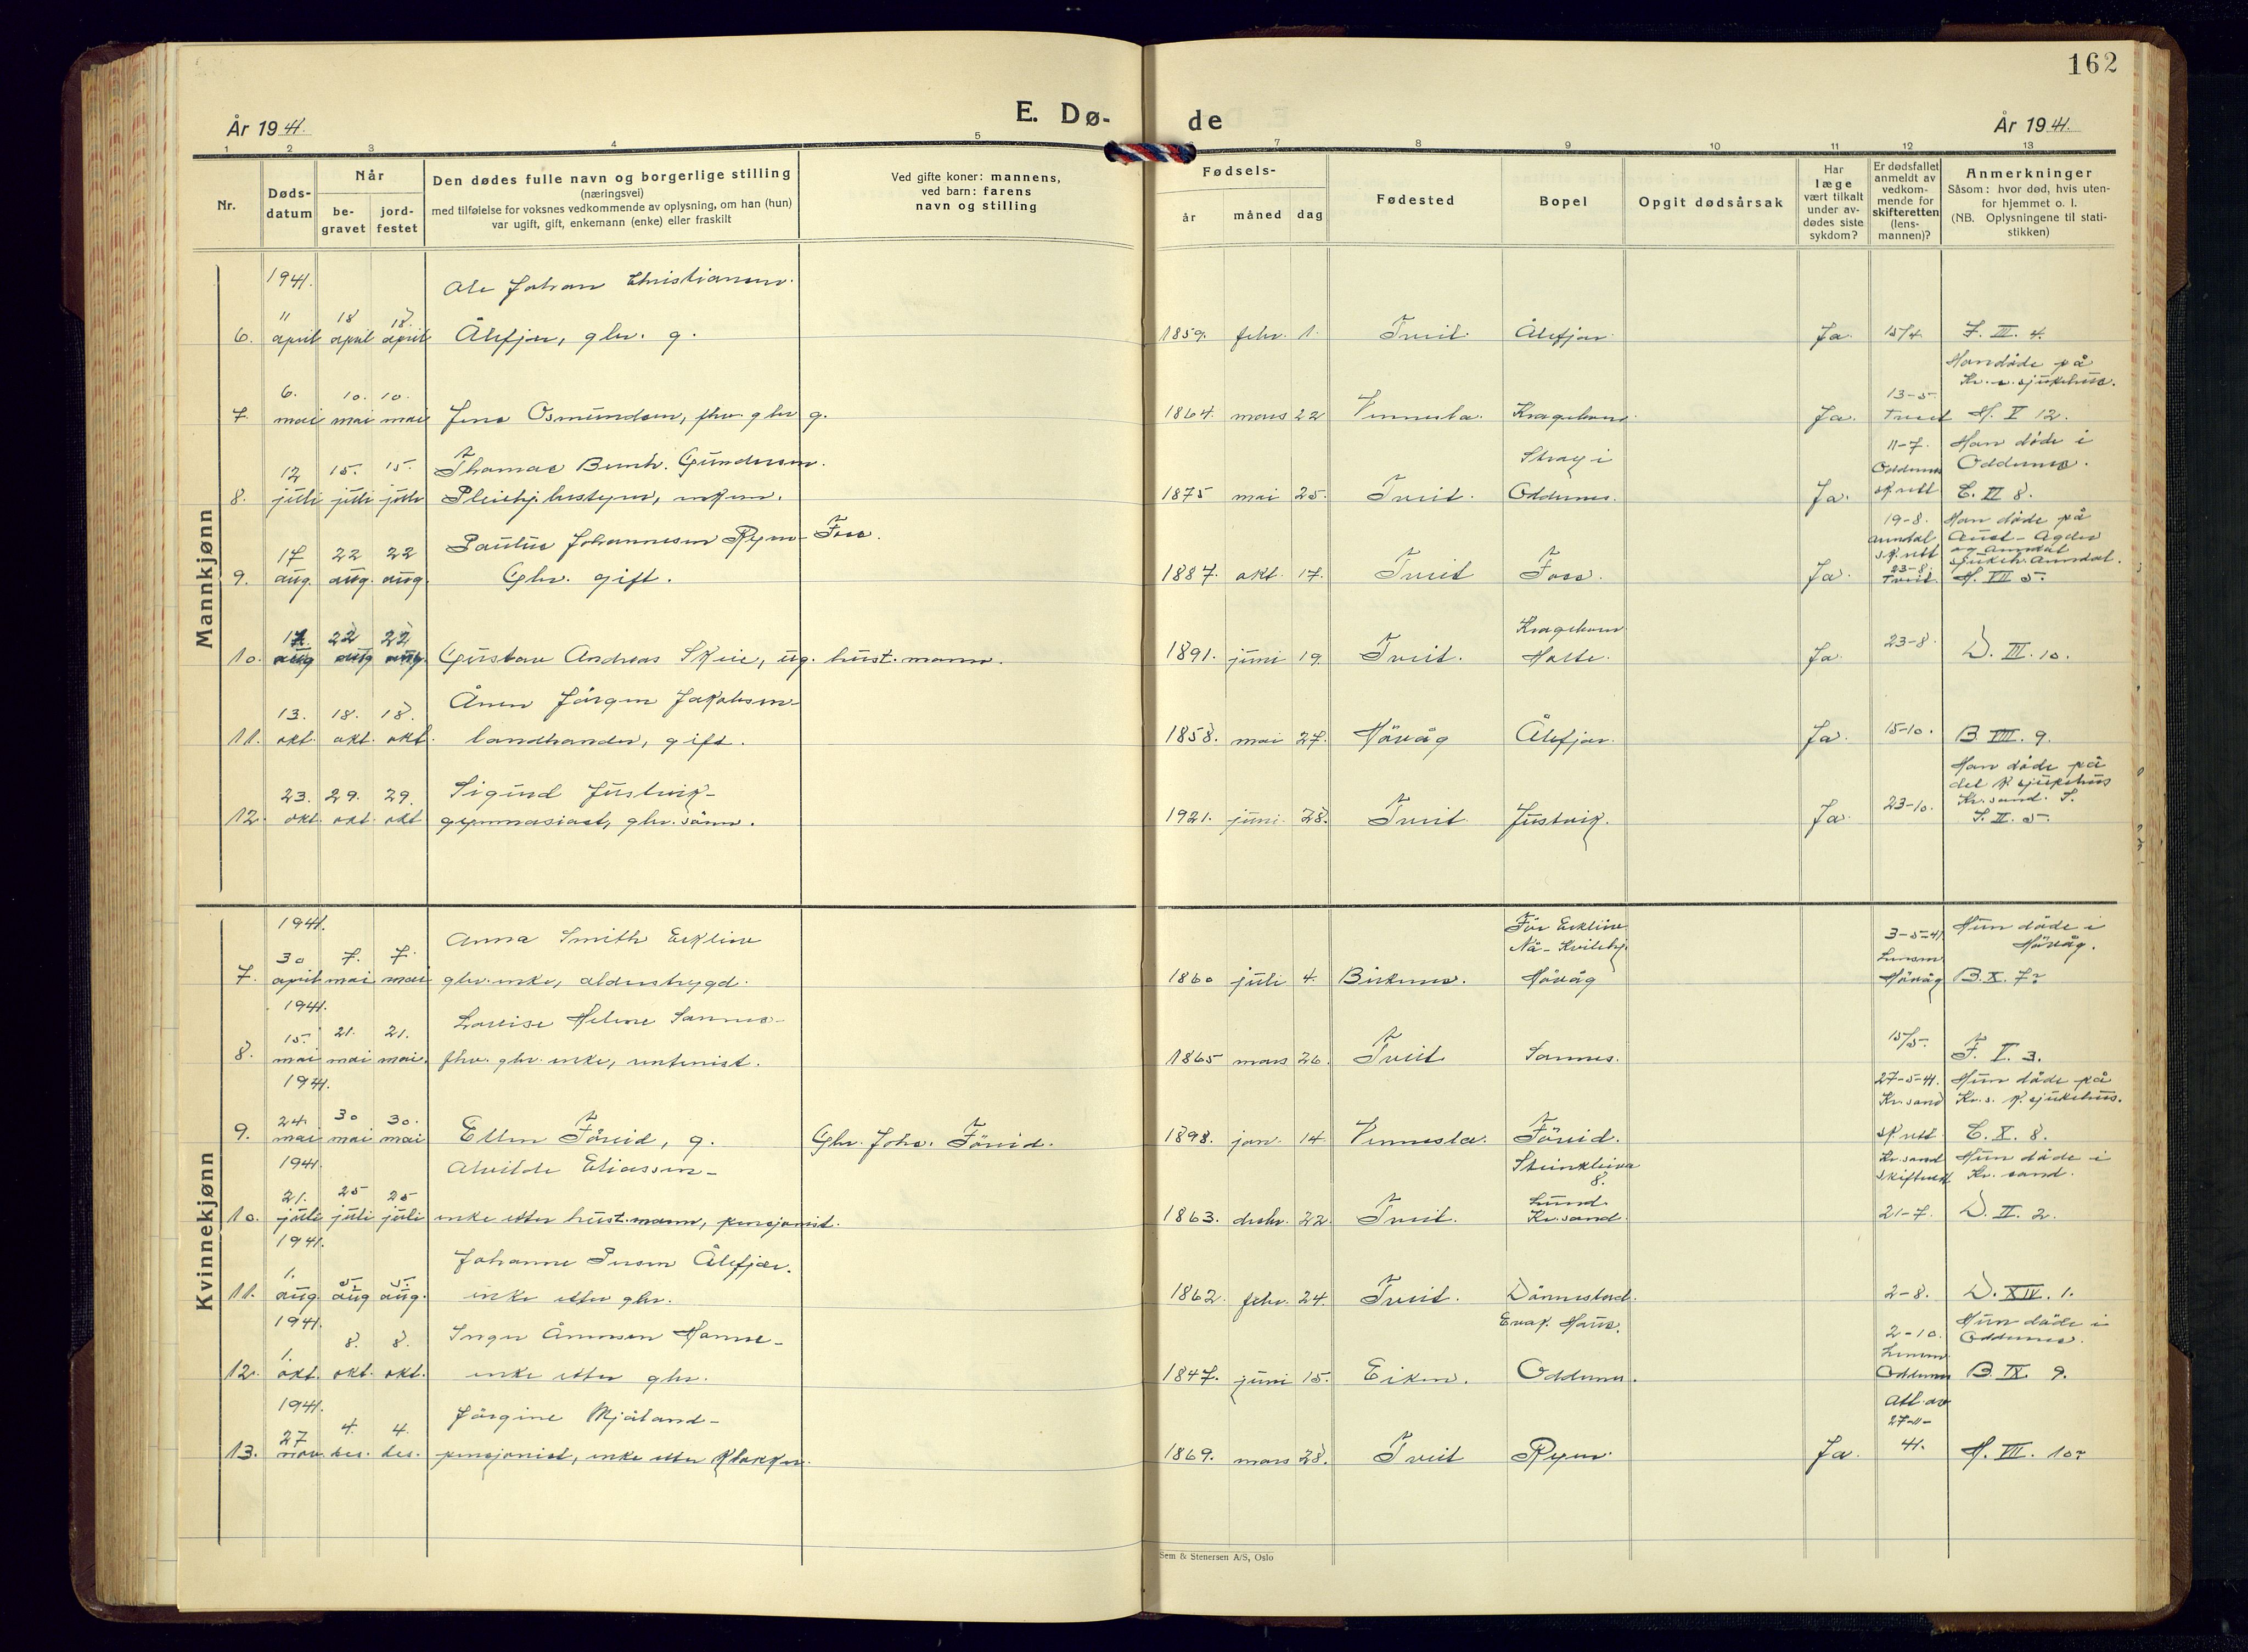 162
E. Dø- de
År 1941.
År 1941.
1 2 3 4 5 6 7 8 9 10 11 12 13
Nr.
Døds-
datum
Når
be-
gravet
jord-
festet
Den dødes fulle navn og borgerlige stilling
(næringsvei)
med tilføielse for voksnes vedkommende av oplysning, om han (hun)
var ugift, gift, enkemann (enke) eller fraskilt
Ved gifte koner: mannens,
ved barn: farens
navn og stilling
Fødsels-
år måned dag
Fødested
Bopel
Opgit dødsårsak
Har
læge
vært tilkalt
under av-
dødes siste
sykdom?
Er dødsfallet
anmeldt av
vedkom-
mende for
skifteretten
(lens-
mannen)?
Anmerkninger
Såsom: hvor død, hvis uten-
for hjemmet o. l.
(NB. Oplysningene til stati-
stikken)
Mannkjønn
1941.
Ole Johan Christiansen
11 18 18.
6. april april april Ålefjær, gbr. g. 1859. febr. 1. Tveit Ålefjær Ja. 15/4 F. III. 4.
Han døde på
Kr. s. sjukehus.
6. 10. 10. 13-5-
7. mai mai mai Jens Osmundsen, fhv. gbr g. 1864. mars 22 Vennesla. Krageboen Ja. Tveit H. V 12.
12 15. 15. Thomas Bernh. Gundersen. Stray i 11-7. Han døde i
Oddernes Oddernes.
8. juli juli juli Pleiehj.bestyrer, enkem. 1875 mai 25. Tveit. Oddernes. Ja. sk.rett C. II 8.
19-8. Han døde på
17 22 22 Paulus Johannesen Ryen- Foss. Arendal Aust-Agder
sk.rett og Arendal
23-8. sjukeh. Arendal.
9. aug. aug. aug. Gbr. gift. 1887. okt. 17. Tveit Foss. Ja. Tveit H. VII 5.
17 22 22 Krageboen 23-8.
10. aug aug aug. Gustav Andreas Skeie, ug. hust.mann. 1891. juni 19. Tveit. Holte. Ja. D. III. 10.
Ånen Jørgen Jakobsen-
13. 18. 18. 15-10.
11. okt. okt. okt. landhandler, gift. 1858. mai 27. Høvåg Ålefjær. Ja. B. VIII. 9.
Han døde på
det k. sjukehus
23. 29. 29. Sigurd Justvik- 23-10. Kr.sand. S.
12. okt. okt. okt gymnasiast, gbr. sønn. 1921. juni 28. Tveit Justvik. Ja. S. II. 5.
Kvinnekjønn
1941. Før Erkleiv
Anna Smith Erkleiv Nå- Kvilehj. 3-5-41 Hun døde i
30 7. 7. Lensm Høvåg.
7. april mai mai gbr.enke, alderstrygd. 1860 juli 4. Birkenes. Høvåg Høvåg B. X. 7?
1941.
15. 21. 21. Lovise Helene Sannes- 15/5.
8. mai mai mai. fhv. gbr. enke, rentenist. 1865 mars 26. Tveit Sannes. F. V. 3.
1941. 27-5-41. Hun døde på
24. 30 30. Kr.sand Kr.s. k. sjukehus.
9. mai mai mai Ellen Føreid, g. Gbr. Johs. Føreid. 1898. jan. 14. Vennesla. Føreid. sk.rett C. X. 8.
1941. Alvilde Eliassen- Steinkleiva Kr.sand Hun døde i
21. 25 25 8. skifterett Kr. sand.
Lund
10. juli juli juli enke etter hust.mann, pensjonist. 1863. desbr. 22. Tveit. Kr.sand. 21-7. D. II. 2.
1941. Johanne Lursen Ålefjær.
1. 5 5.
11. aug aug aug. enke etter gbr. 1862. febr. 24. Tveit. Dønnestad. 2-8. D. XIV. 1.
1941. Evak. Haus. Hun døde i
8. 8. Inger Ånensen Hamre- 2-10. Oddernes.
1. Lensm
12. okt. okt. okt. enke etter gbr. 1847. juni 15. Eiken. Oddernes. Oddernes B. IX. 9.
1941. Jørgine Mjåland- Att. av
27 4. 4. 27-11-
13. nov. des. des. pensjonist, enke etter klokker. 1869. mars 28. Tveit Ryen Ja. 41. H. VII. 10?
Sem & Stenersen A/S, Oslo